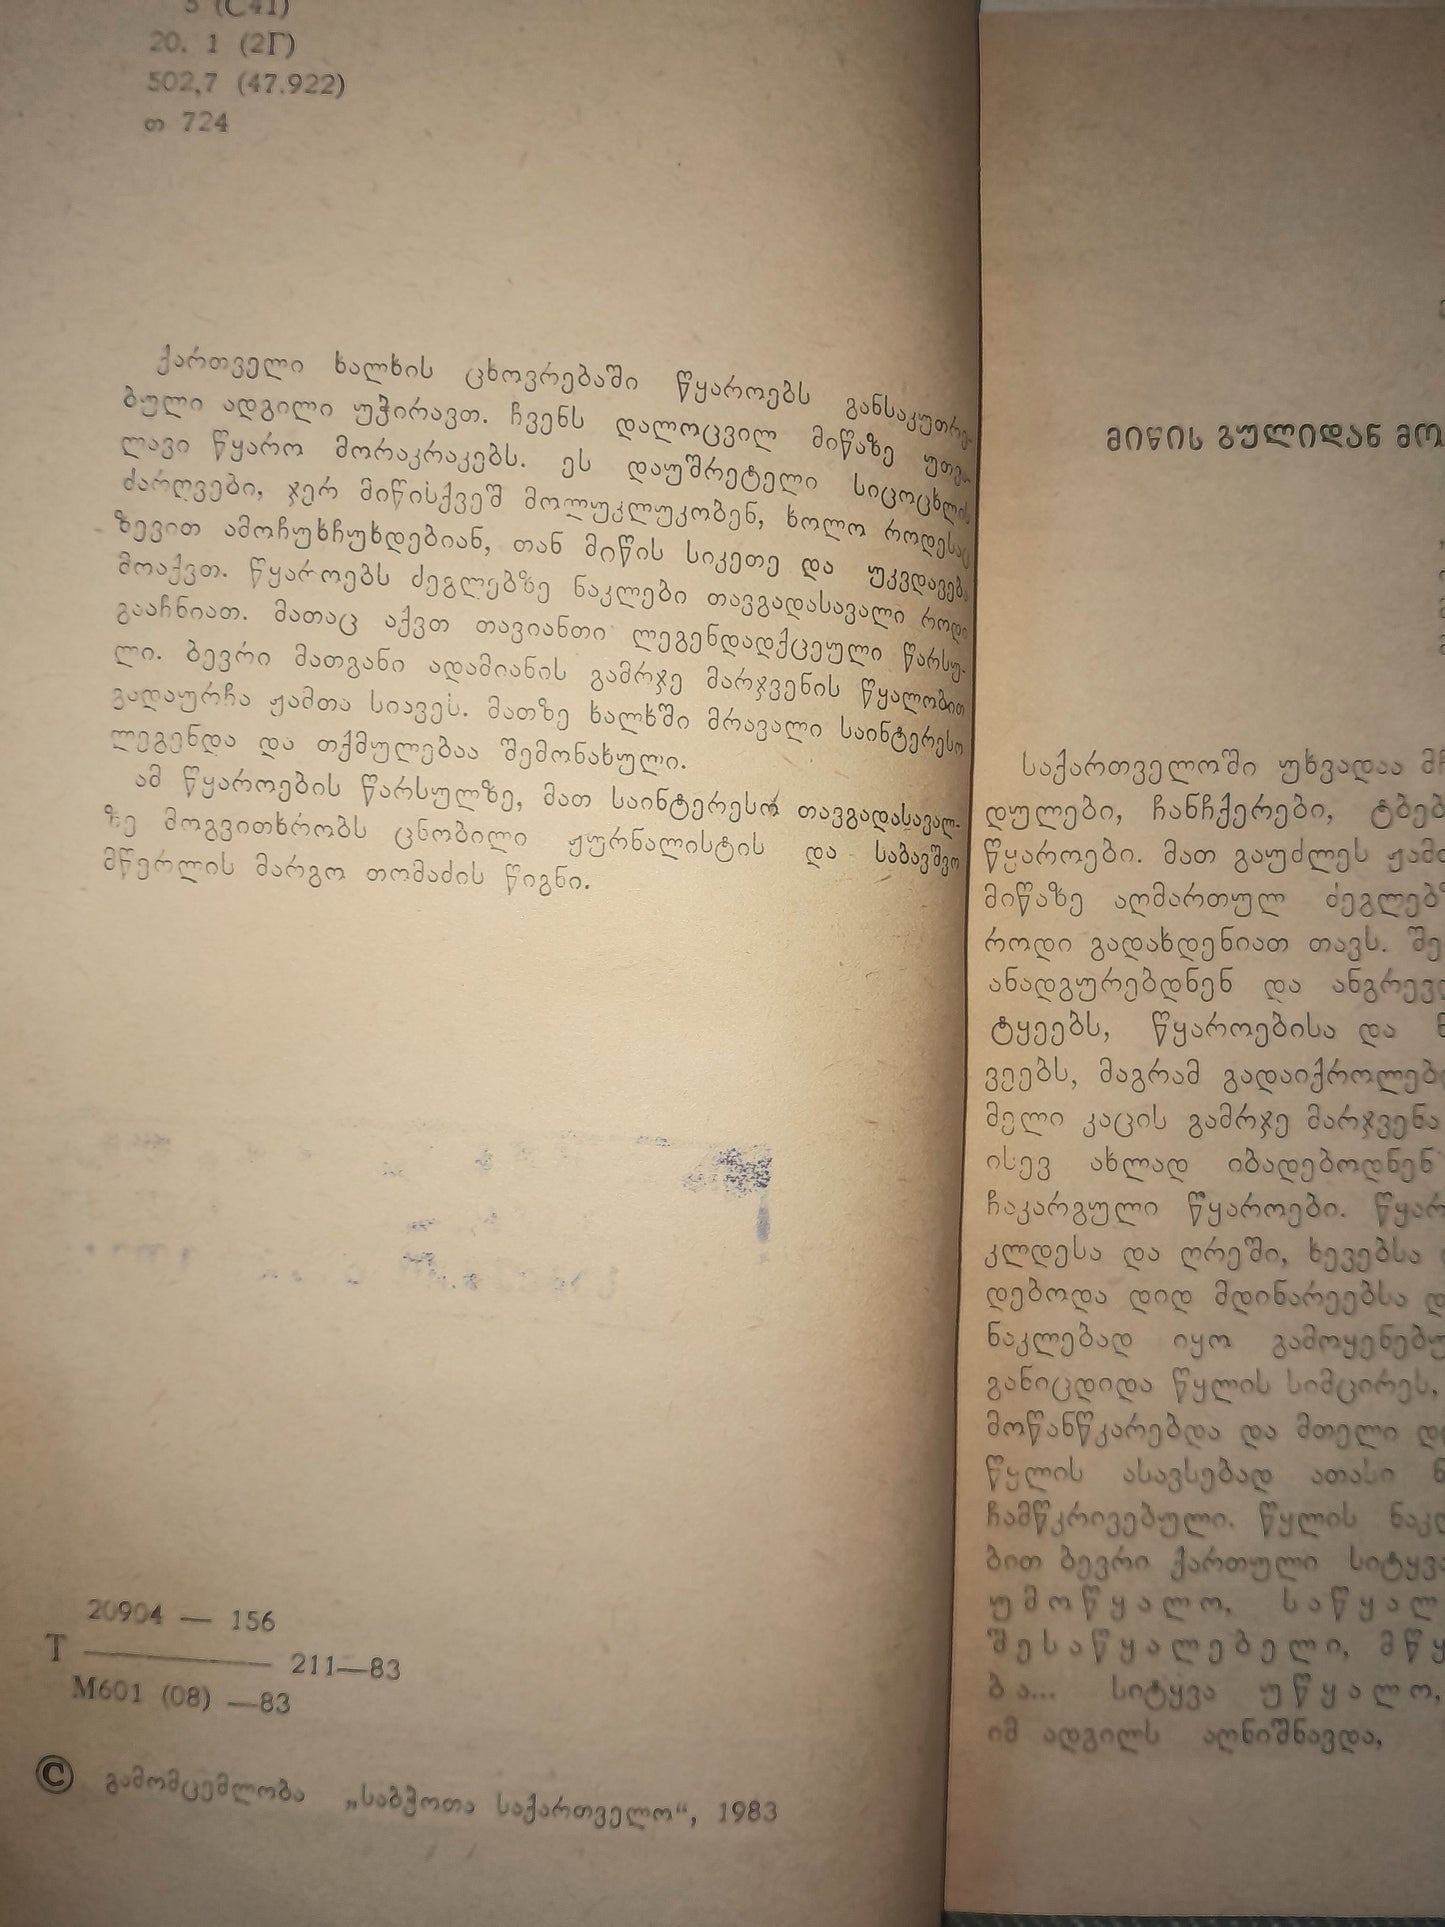 5 (С41)
20. 1 (2Г)
502,7 (47.922)
თ 724
ქართველი ხალხის ცხოვრებაში წყაროებს განსაკუთრე-
ბული ადგილი უჭირავთ. ჩვენს დალოცვილ მიწაზე უთვა-
ლავი წყარო მორაკრაკებს. ეს დაუშრეტელი სიცოცხლის
ძარღვები, ჯერ მიწისქვეშ მოლუკლუკობენ, ხოლო როდესაც
ზევით ამოჩუხჩუხდებიან, თან მიწის სიკეთე და უკვდავება
მოაქვთ. წყაროებს ძეგლებზე ნაკლები თავგადასავალი როდი
გააჩნიათ. მათაც აქვთ თავიანთი ლეგენდადქცეული წარსუ-
ლი. ბევრი მათგანი ადამიანის გამრჯე მარჯვენის წყალობით
გადაურჩა ჟამთა სიავეს. მათზე ხალხში მრავალი საინტერესო
ლეგენდა და თქმულებაა შემონახული.
ამ წყაროების წარსულზე, მათ საინტერესო თავგადასავალ-
ზე მოგვითხრობს ცნობილი ჟურნალისტის და საბავშვო
მწერლის მარგო თომაძის წიგნი.
20904 — 156
Т 211—83
М601 (08) —83
© გამომცემლობა „საბჭოთა საქართველო“, 1983
მიწის გულიდან
საქართველოში უხვადაა
დულები, ჩანჩქერები,
წყაროები. მათ გაუძლეს
მიწაზე აღმართულ
როდი გადახდენიათ თავს.
ანადგურებდნენ და
ტყეებს, წყაროებისა და
ვეებს, მაგრამ
მელი კაცის გამრჯე მარჯვენა
ისევ ახლად იბადებოდნენ
ჩაკარგული წყაროები.
კლდესა და ღრეში, ხევებსა
დებოდა დიდ მდინარეებსა
ნაკლებად იყო
განიცდიდა წყლის სიმცირეს,
მოწანწკარებდა და მთელი
წყლის ასავსებად ათასი
ჩამწკრივებული. წყლის
ბით ბევრი ქართული
უ მ ო წ ყ ა ლ ო,
შ ე ს ა წ ყ ა ლ ე ბ ე ლ ი,
ბ ა... სიტყვა უ წ ყ ა ლ ო,
იმ ადგილს აღნიშნავდა,